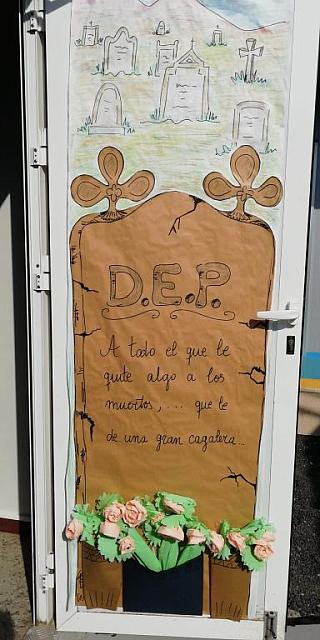 D.E.P.
A todo el que le
quite algo a los
muertos,.... que le
de una gran cagalera...